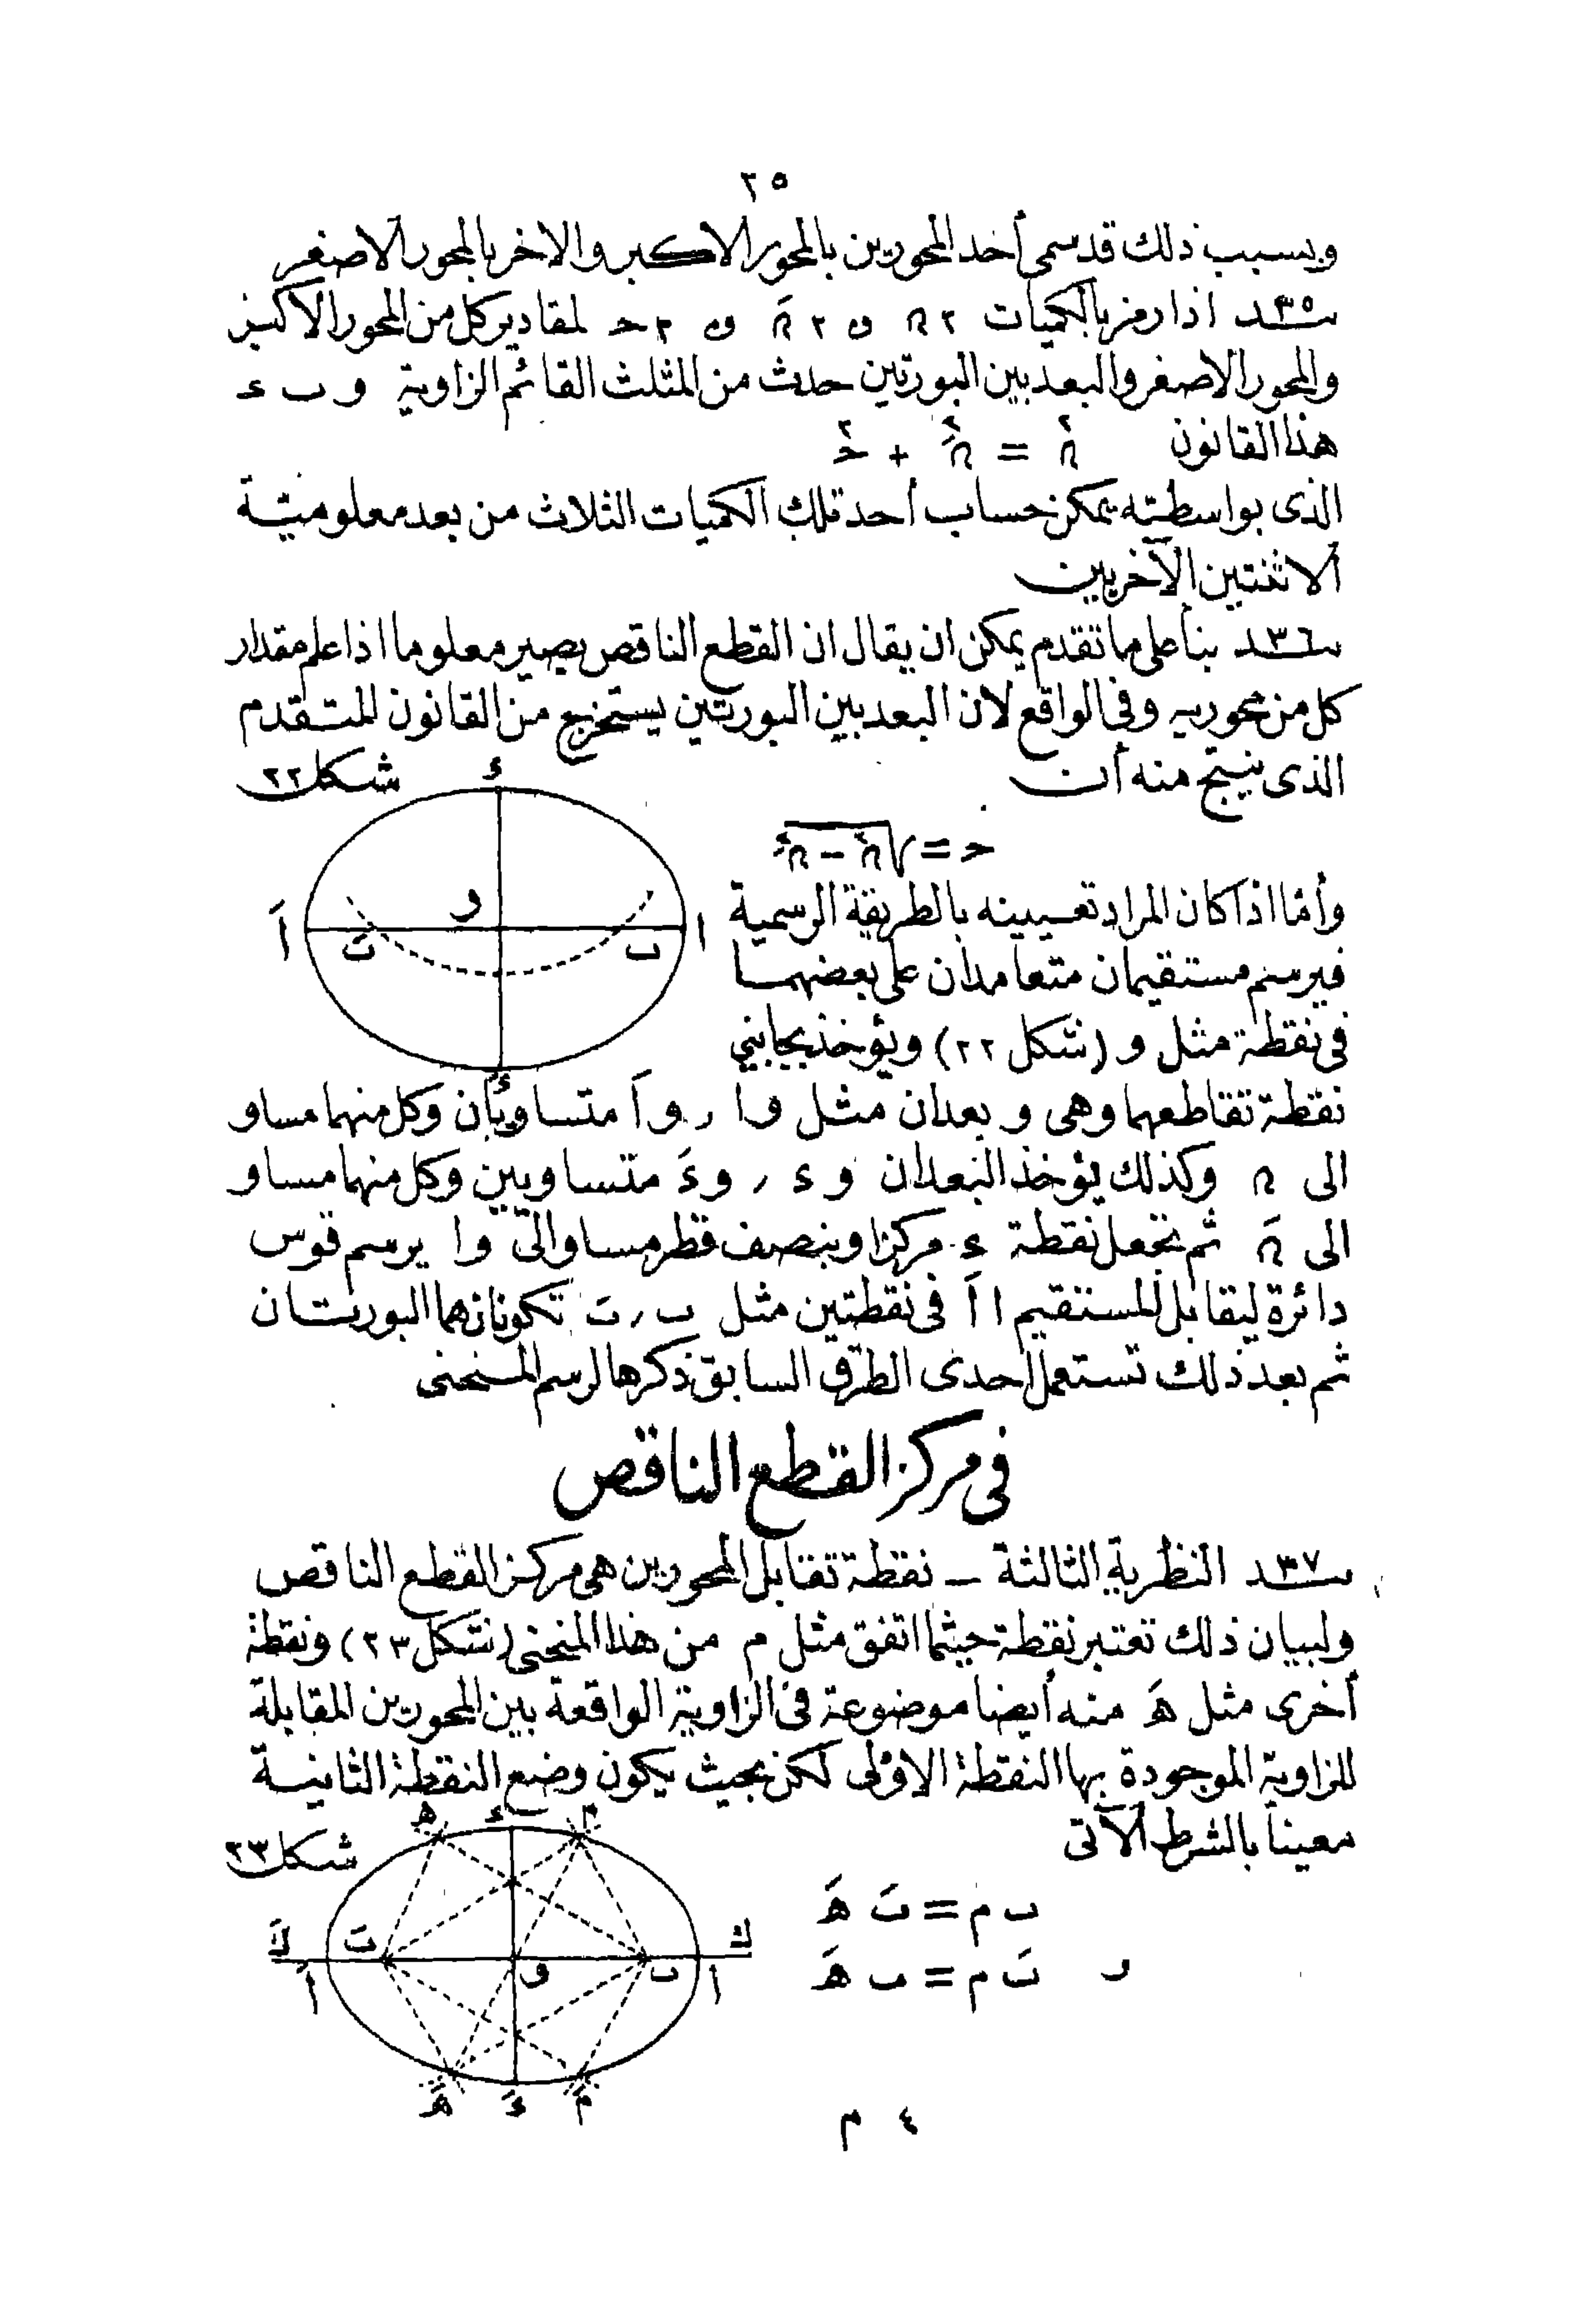 ٢٥
وبسبب ذلك قد سمى أحد المحورين بالمحور الاكبر والاخر بالمحور الاصغر
سـ٣٥ـد اذا رمز بالكميات ٢ ھ و ٢ ھَ و ٢ حـ لمقادير كل من المحور الاكبر
والمحور الاصغر والبعد بين البورتين حدث من المثلث القائم الزاوية و ب ء
هذا القانون ھ٢ = ھَ٢ + حـ٢
الذى بواسطته يمكن حساب أحد تلك الكميات الثلاث من بعد معلومية
الاثنتين الآخريين
سـ٣٦ـد بنأ على ما تقدم يمكن ان يقال ان القطع الناقص يصير معلوما اذا علم مقدار
كل من محوريه وفى الواقع لان البعد بين البورتين يستخرج من القانون المتقدم
الذى ينتج منه أن
شكل ٢٢
حـ = √ھ٢ – ھَ٢
وأما اذا كان المراد تعيينه بالطريقة الرسمية
فيرسم مستقيمان متعامدان على بعضهما
فى نقطة مثل و (شكل ٢٢) ويؤخذ بجانبي
ء
و
أَ
بَ
ب
ا
ءَ
نقطة تقاطعهما وهى و بعدان مثل وا ر وأَ متساويان وكل منهما مساو
الى ھ وكذلك يؤخذ البعدان وء ر وءَ متساويين وكل منهما مساو
الى ھَ ثم تجعل نقطة ء مركزا وبنصف قطر مساو الى وا يرسم قوس
دائرة ليقابل المستقيم ا أَ فى نقطتين مثل ب ر بَ تكونان هما البورتان
ثم بعد ذلك تستعمل احدى الطرق السابق ذكرها لرسم المنحنى
فى مركز القطع الناقص
سـ٣٧ـد النظرية الثالثة – نقطة تقابل المحورين هى مركز القطع الناقص
ولبيان ذلك تعتبر نقطة حيثما اتفق مثل م من هذا المنحنى (شكل ٢٣) ونقطة
أخرى مثل هَ منه أيضا موضوعة فى الزاوية الواقعة بين المحورين المقابلة
للزاوية الموجودة بها النقطة الاولى لكن بحيث يكون وضع النقطة الثانية
معينا بالشرط الآتى
شكل ٢٣
ب م = بَ هَ
و بَ م = ب هَ
ه
ء
م
كَ
بَ
ك
أَ
و
ب
ا
هَ
ءَ
مَ
٤ م